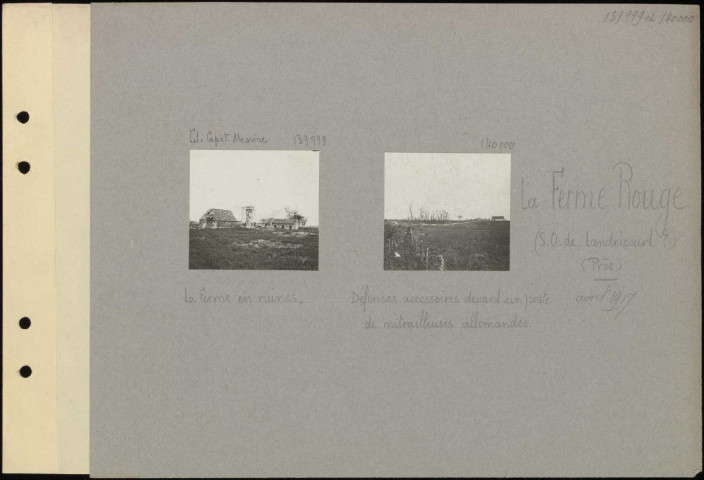 139999 et 140000
Col. Capit Messire 139999
140000
La Ferme Rouge
(S.O. de Landricourt ?)
(Près)
avril 1917
La ferme en ruines.
Défenses accessoires devant un poste
de mitrailleuses allemandes.